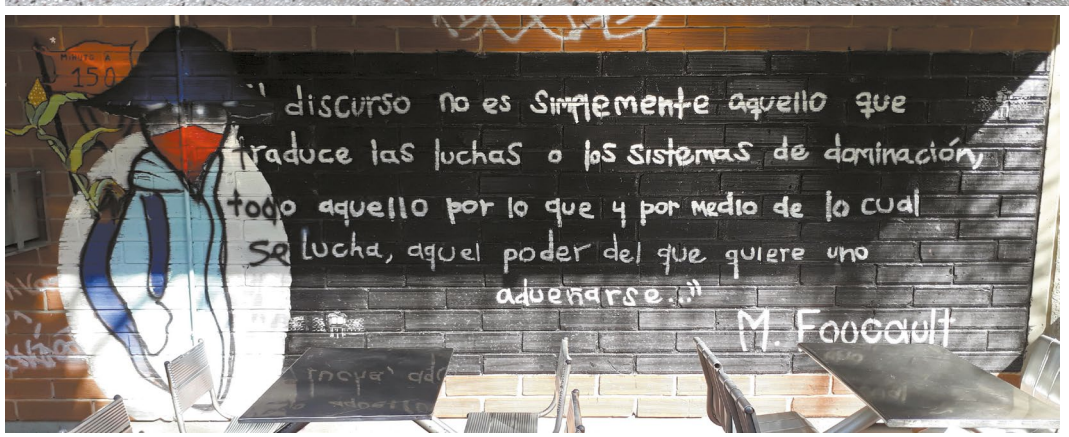 MINUTO A
150
" discurso no es simplemente aquello que
traduce las luchas o los sistemas de dominación,
todo aquello por lo que y por medio de lo cual
se lucha, aquel poder del que quiere uno
adueñarse..."
M. Foucault